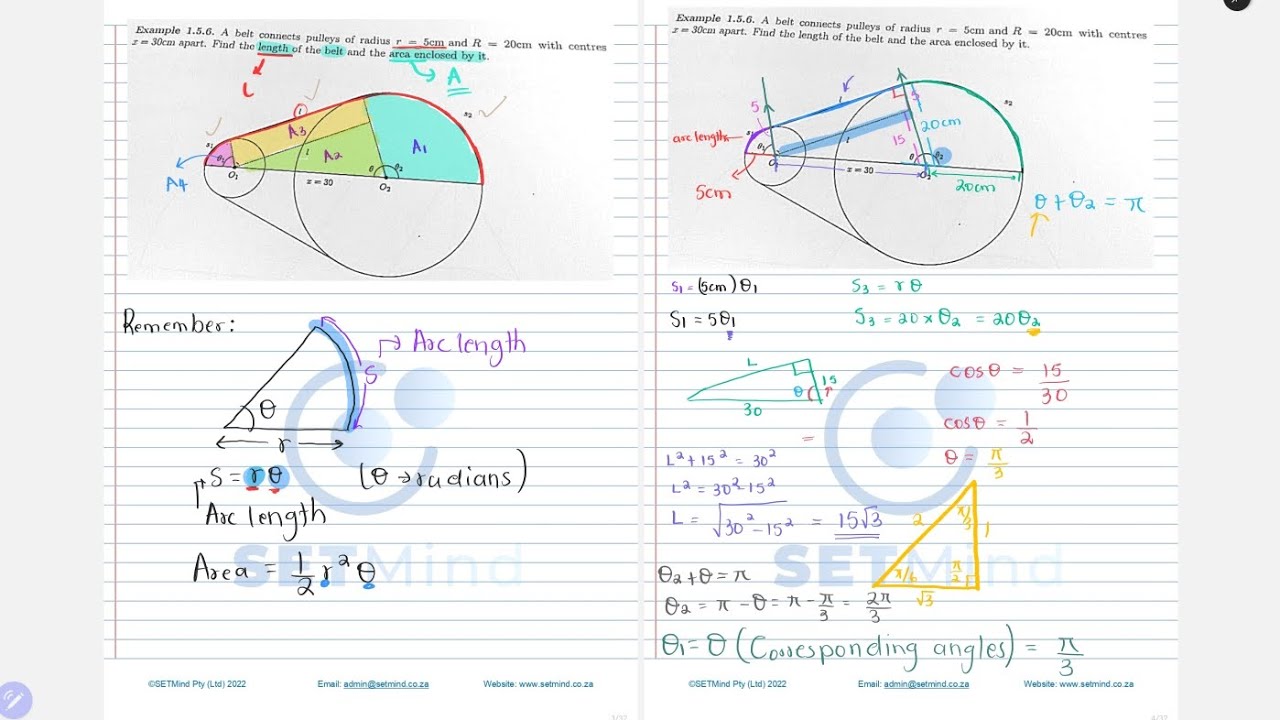 Example 1.5.6. A belt connects pulleys of radius r = 5cm and R = 20cm with centres
x = 30cm apart. Find the length of the belt and the area enclosed by it.
L
A
l
s₂
A3
A1
A2
A4
l
θ
θ₂
θ₁
O₁
x = 30
O₂
Remember:
Arc length
S
θ
r
S = rθ (θ → radians)
Arc length
Area = 1/2 r² θ
SETMind
©SETMind Pty (Ltd) 2022 Email: admin@setmind.co.za Website: www.setmind.co.za
1/37
Example 1.5.6. A belt connects pulleys of radius r = 5cm and R = 20cm with centres
x = 30cm apart. Find the length of the belt and the area enclosed by it.
l
5
5
s₂
arc lengths
s₁
20cm
15
l
θ₁
θ
θ₂
O₁
x = 30
O₂
5cm
20cm
θ + θ₂ = π
S₁ = (5cm)θ₁
S₃ = rθ
S₁ = 5θ₁
S₃ = 20 × θ₂ = 20θ₂
L
15
θ
30
cosθ = 15/30
=
cosθ = 1/2
L² + 15² = 30²
θ = π/3
L² = 30² - 15²
L = √30² - 15² = 15√3
2
π/3
1
π/6
π/2
√3
SETMind
θ₂ + θ = π
θ₂ = π - θ = π - π/3 = 2π/3
θ₁ = θ (Corresponding angles) = π/3
©SETMind Pty (Ltd) 2022 Email: admin@setmind.co.za Website: www.setmind.co.za
4/37